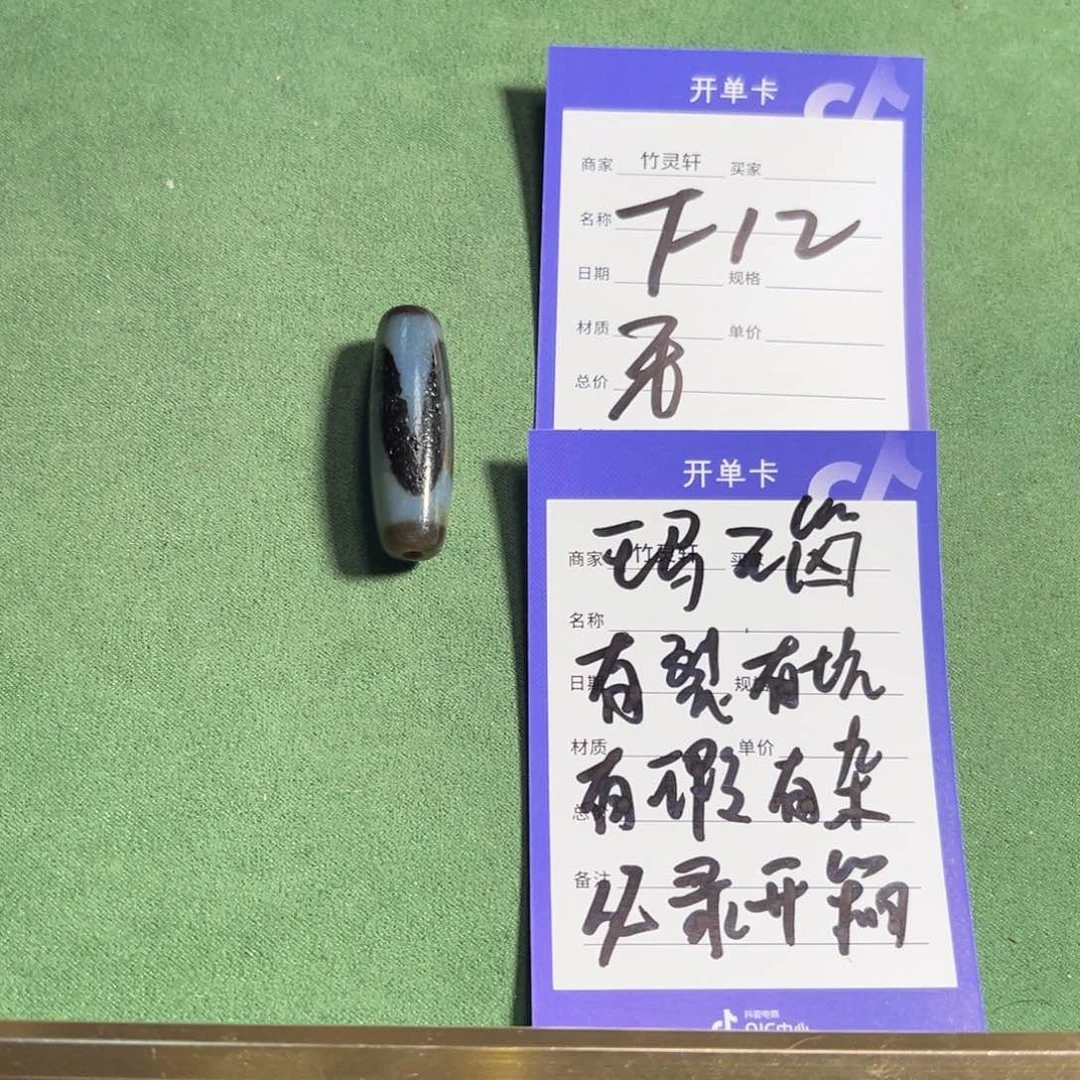 开单卡
商家 竹灵轩 买家
名称 下12
日期 规格
材质 单价
总价
开单卡
商家 竹灵轩 买
玛瑙
名称
日期 规格
有裂有坑
材质 单价
有瑕有杂
总
备注
必录开箱
抖音电商
QIC中心